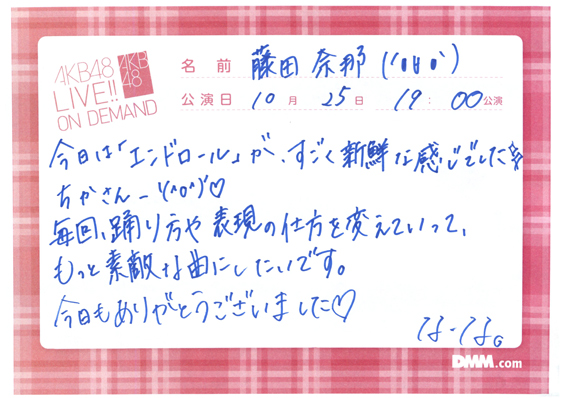 AKB48
LIVE!!
ON DEMAND
AKB
48
名前 藤田奈那 ('ㅂ')
公演日 10月 25日 19:00公演
今日は「エンドロール」が、すごく新鮮な感じでした
ちかさんー\(^o^)/♡
毎回、踊り方や表現の仕方を変えていって、
もっと素敵な曲にしたいです。
今日もありがとうございました♡
なーな。
DMM.com